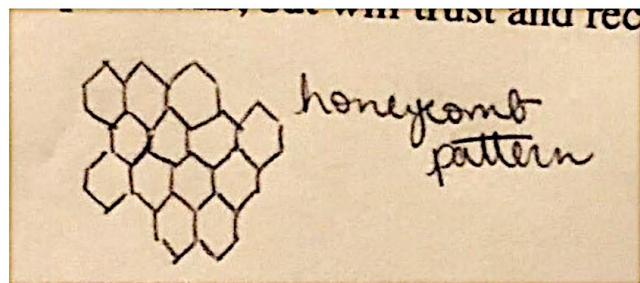 but will trust and rec
honeycomb
pattern